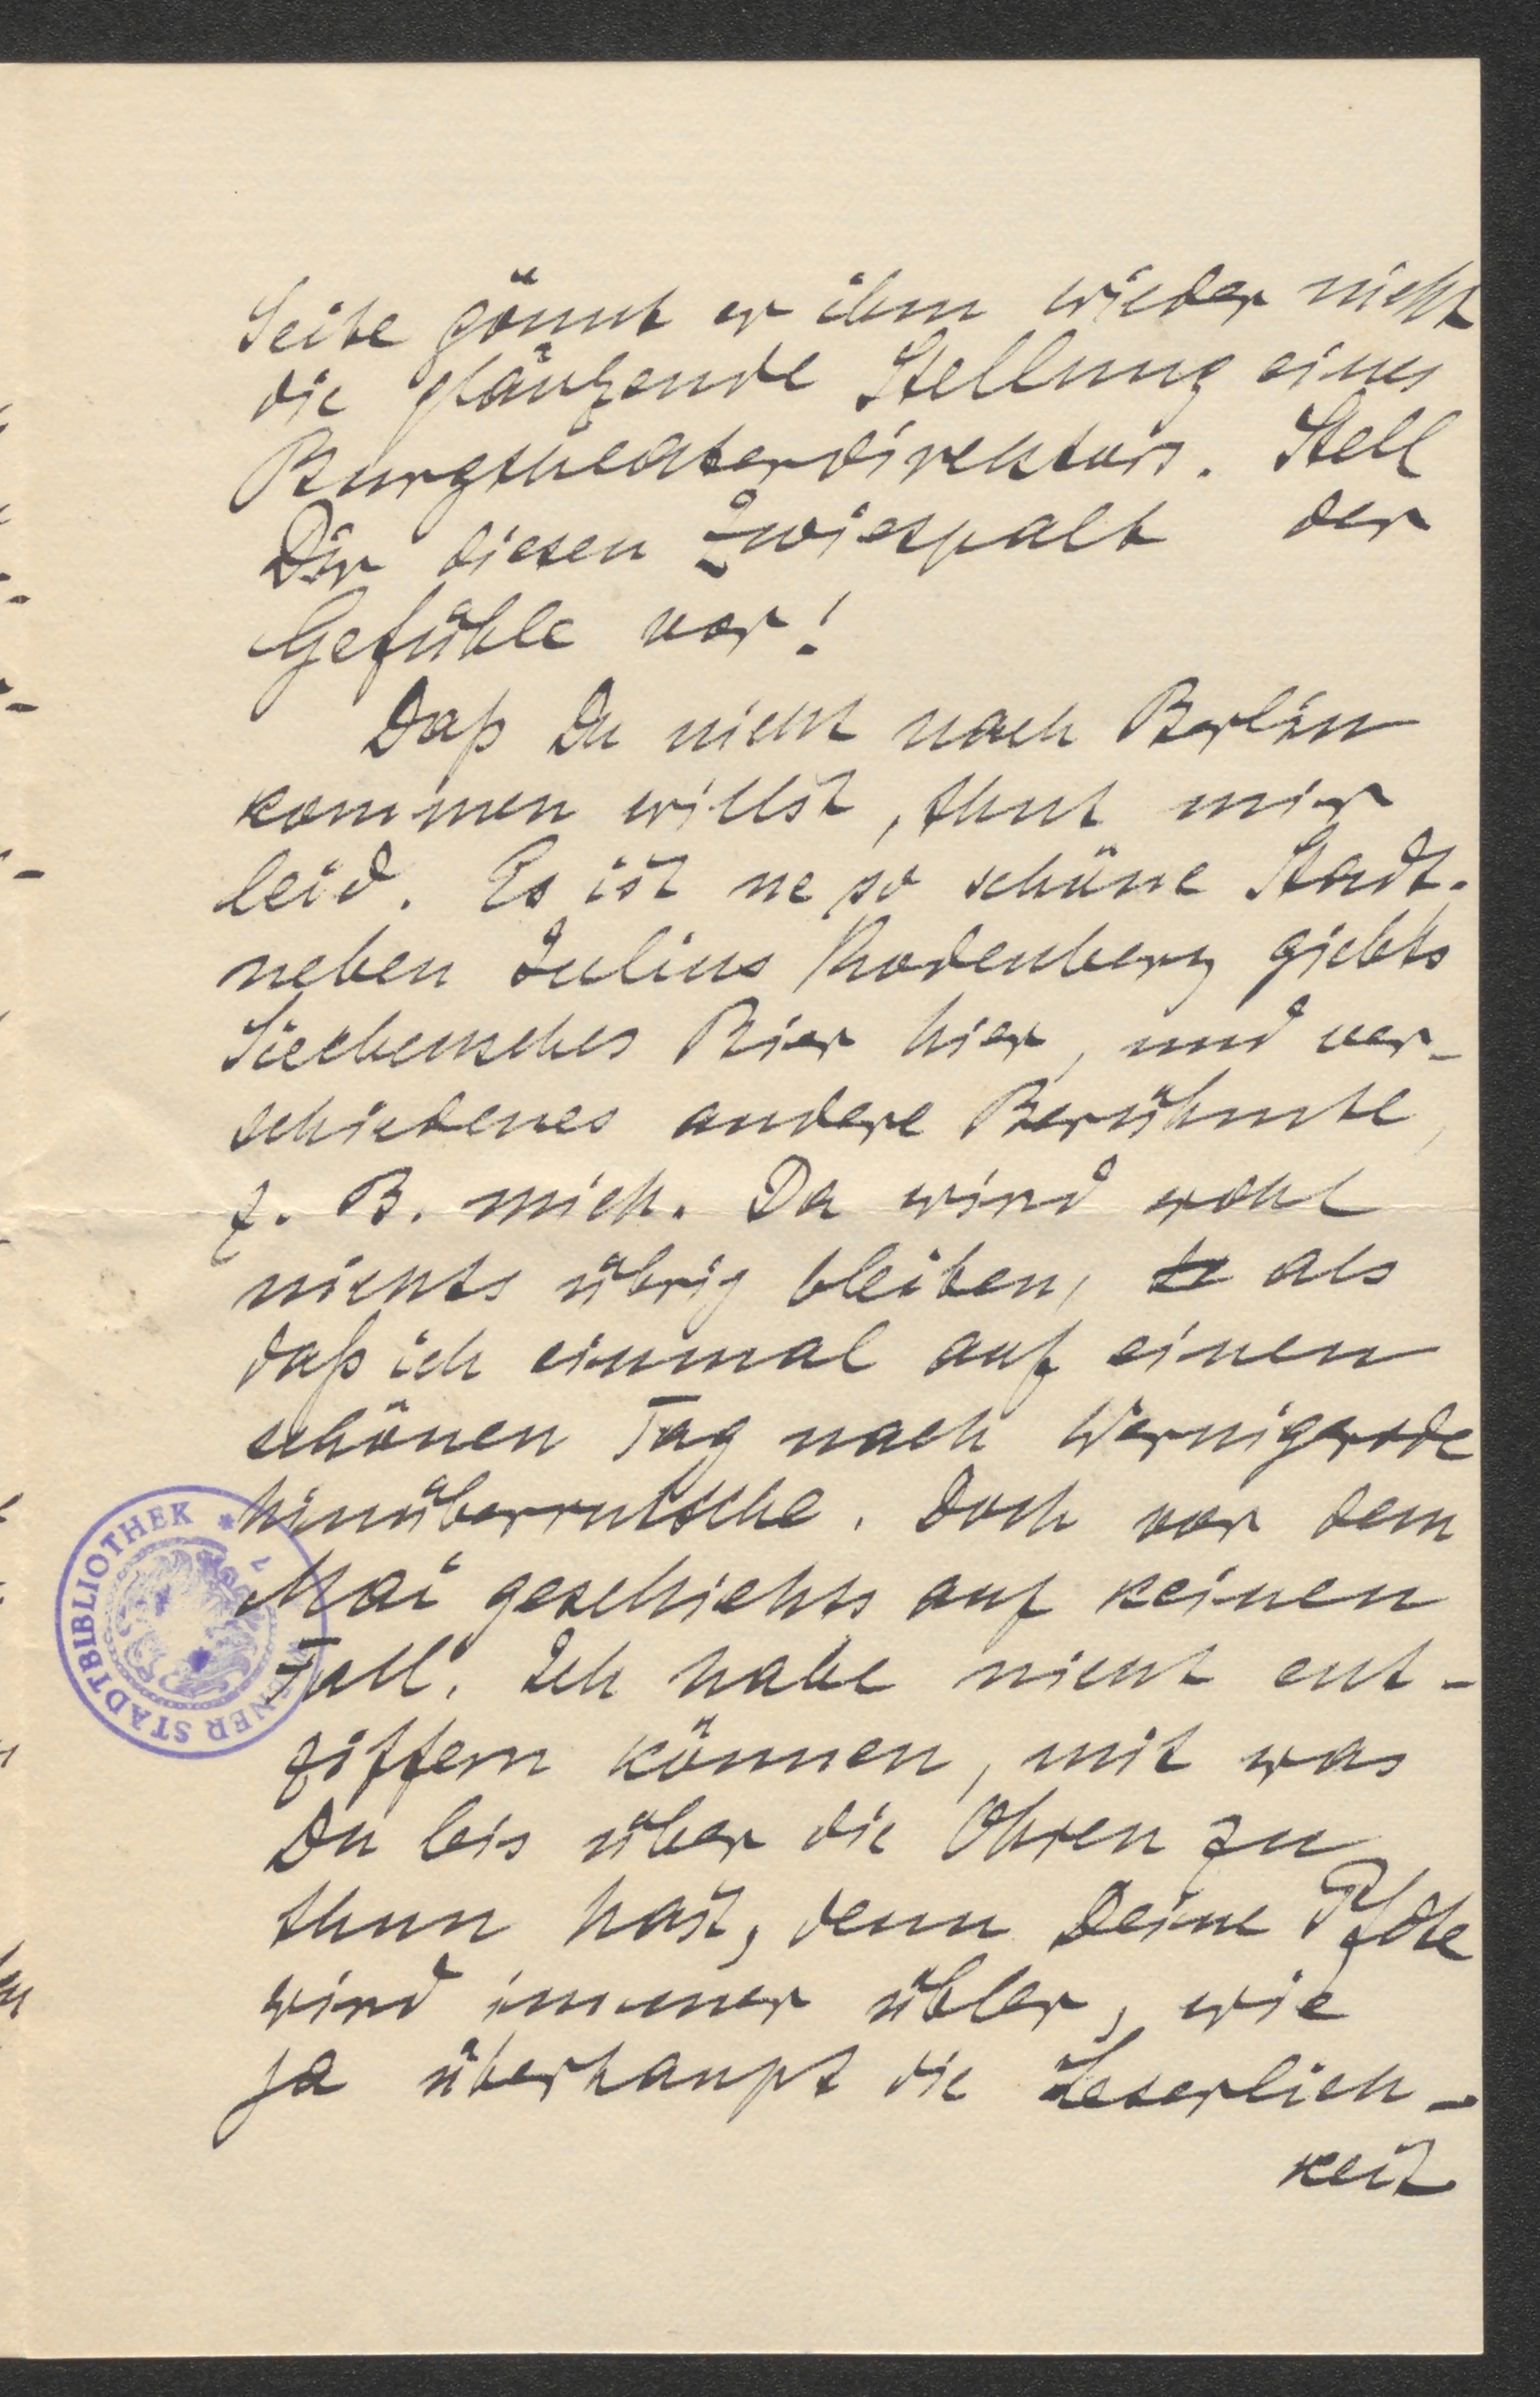 Seite gönnt er ihm wieder nicht
die glänzende Stellung eines
Burgtheaterdirektors. Stell
Dir diesen Zwiespalt der
Gefühle vor!
Daß Du nicht nach Berlin
kommen willst, thut mir
leid. Es ist ne so schöne Stadt.
neben Julius Rodenberg giebts
Siechensches Bier hier, und ver-
schiedenes andere Berühmte,
z. B. mich. Da wird wohl
nichts übrig bleiben, als
daß ich einmal auf einen
schönen Tag nach Wernigerode
hinüberrutsche. Doch vor dem
Mai geschiehts auf keinen
Fall. Ich habe nicht ent-
ziffern können, mit was
Du bis über die Ohren zu
thun hast, denn Deine Pfote
wird immer übler, wie
ja überhaupt die Leserlich-
keit
WIENER STADTBIBLIOTHEK *